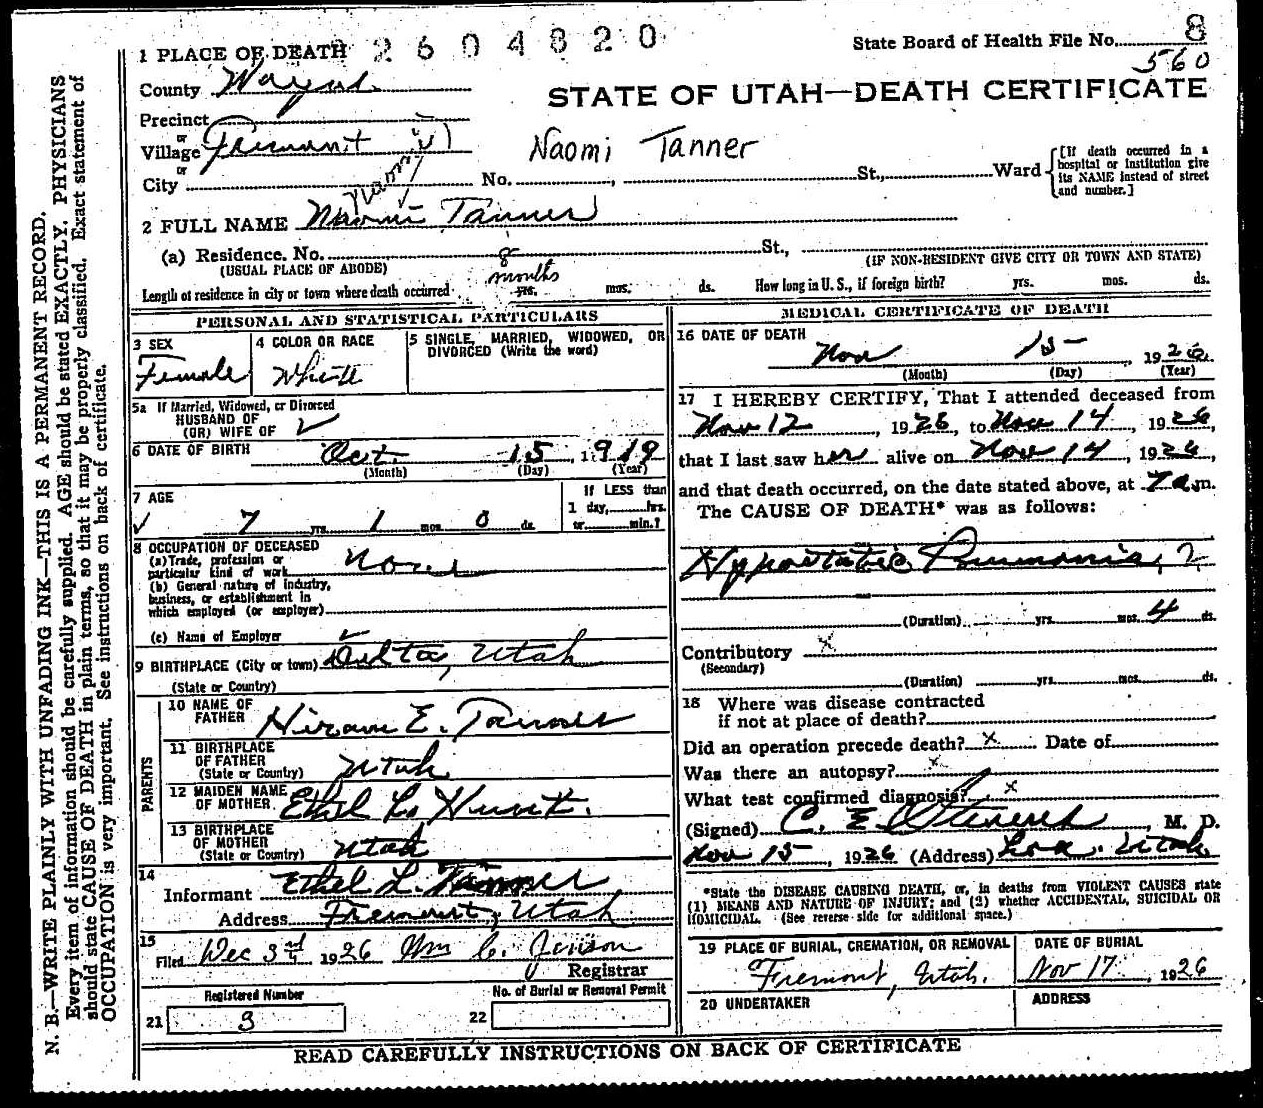 2604820
State Board of Health File No. 8
560
1 PLACE OF DEATH
County Wayne
STATE OF UTAH—DEATH CERTIFICATE
Precinct
or
Village Fremont
Naomi Tanner
or
City No. , St., Ward
[If death occurred in a hospital or institution give its NAME instead of street and number.]
Naomi
2 FULL NAME Naomi Tanner
(a) Residence. No. St.,
(USUAL PLACE OF ABODE) (IF NON-RESIDENT GIVE CITY OR TOWN AND STATE)
8 months
Length of residence in city or town where death occurred yrs. mos. ds. How long in U. S., if foreign birth? yrs. mos. ds.
PERSONAL AND STATISTICAL PARTICULARS
3 SEX Female
4 COLOR OR RACE White
5 SINGLE, MARRIED, WIDOWED, OR DIVORCED (Write the word)
5a If Married, Widowed, or Divorced
HUSBAND OF
(OR) WIFE OF
6 DATE OF BIRTH Oct. 15, 1919
(Month) (Day) (Year)
7 AGE
7 yrs. 1 mos. 0 ds.
If LESS than
1 day, hrs.
or min.?
8 OCCUPATION OF DECEASED
(a) Trade, profession or
particular kind of work None
(b) General nature of industry,
business, or establishment in
which employed (or employer)
(c) Name of Employer
9 BIRTHPLACE (City or town) Delta, Utah
(State or Country)
PARENTS
10 NAME OF
FATHER Hiram E. Tanner
11 BIRTHPLACE
OF FATHER
(State or Country) Utah
12 MAIDEN NAME
OF MOTHER Ethel L. Hunt.
13 BIRTHPLACE
OF MOTHER
(State or Country) Utah
14
Informant Ethel L. Tanner
Address Fremont, Utah
15
Filed Dec 3rd 1926 Wm C. Jenson
Registrar
Registered Number
21 3
No. of Burial or Removal Permit
22
MEDICAL CERTIFICATE OF DEATH
16 DATE OF DEATH
Nov 15, 1926
(Month) (Day) (Year)
17 I HEREBY CERTIFY, That I attended deceased from
Nov 12, 1926, to Nov 14, 1926,
that I last saw her alive on Nov 14, 1926,
and that death occurred, on the date stated above, at 7 a.m.
The CAUSE OF DEATH* was as follows:
Hypostatic Pneumonia, ?
(Duration) yrs. mos. 4 ds.
Contributory x
(Secondary)
(Duration) yrs. mos. ds.
18 Where was disease contracted
if not at place of death?
Did an operation precede death? x Date of
Was there an autopsy? x
What test confirmed diagnosis? x
(Signed) C. E. Stevens, M. D.
Nov 15, 1926 (Address) Loa. Utah.
*State the DISEASE CAUSING DEATH, or, in deaths from VIOLENT CAUSES state
(1) MEANS AND NATURE OF INJURY; and (2) whether ACCIDENTAL, SUICIDAL OR
HOMICIDAL. (See reverse side for additional space.)
19 PLACE OF BURIAL, CREMATION, OR REMOVAL
Fremont, Utah.
DATE OF BURIAL
Nov 17 1926
20 UNDERTAKER
ADDRESS
READ CAREFULLY INSTRUCTIONS ON BACK OF CERTIFICATE
N. B.—WRITE PLAINLY WITH UNFADING INK—THIS IS A PERMANENT RECORD.
Every item of information should be carefully supplied. AGE should be stated EXACTLY. PHYSICIANS
should state CAUSE OF DEATH in plain terms, so that it may be properly classified. Exact statement of
OCCUPATION is very important. See instructions on back of certificate.